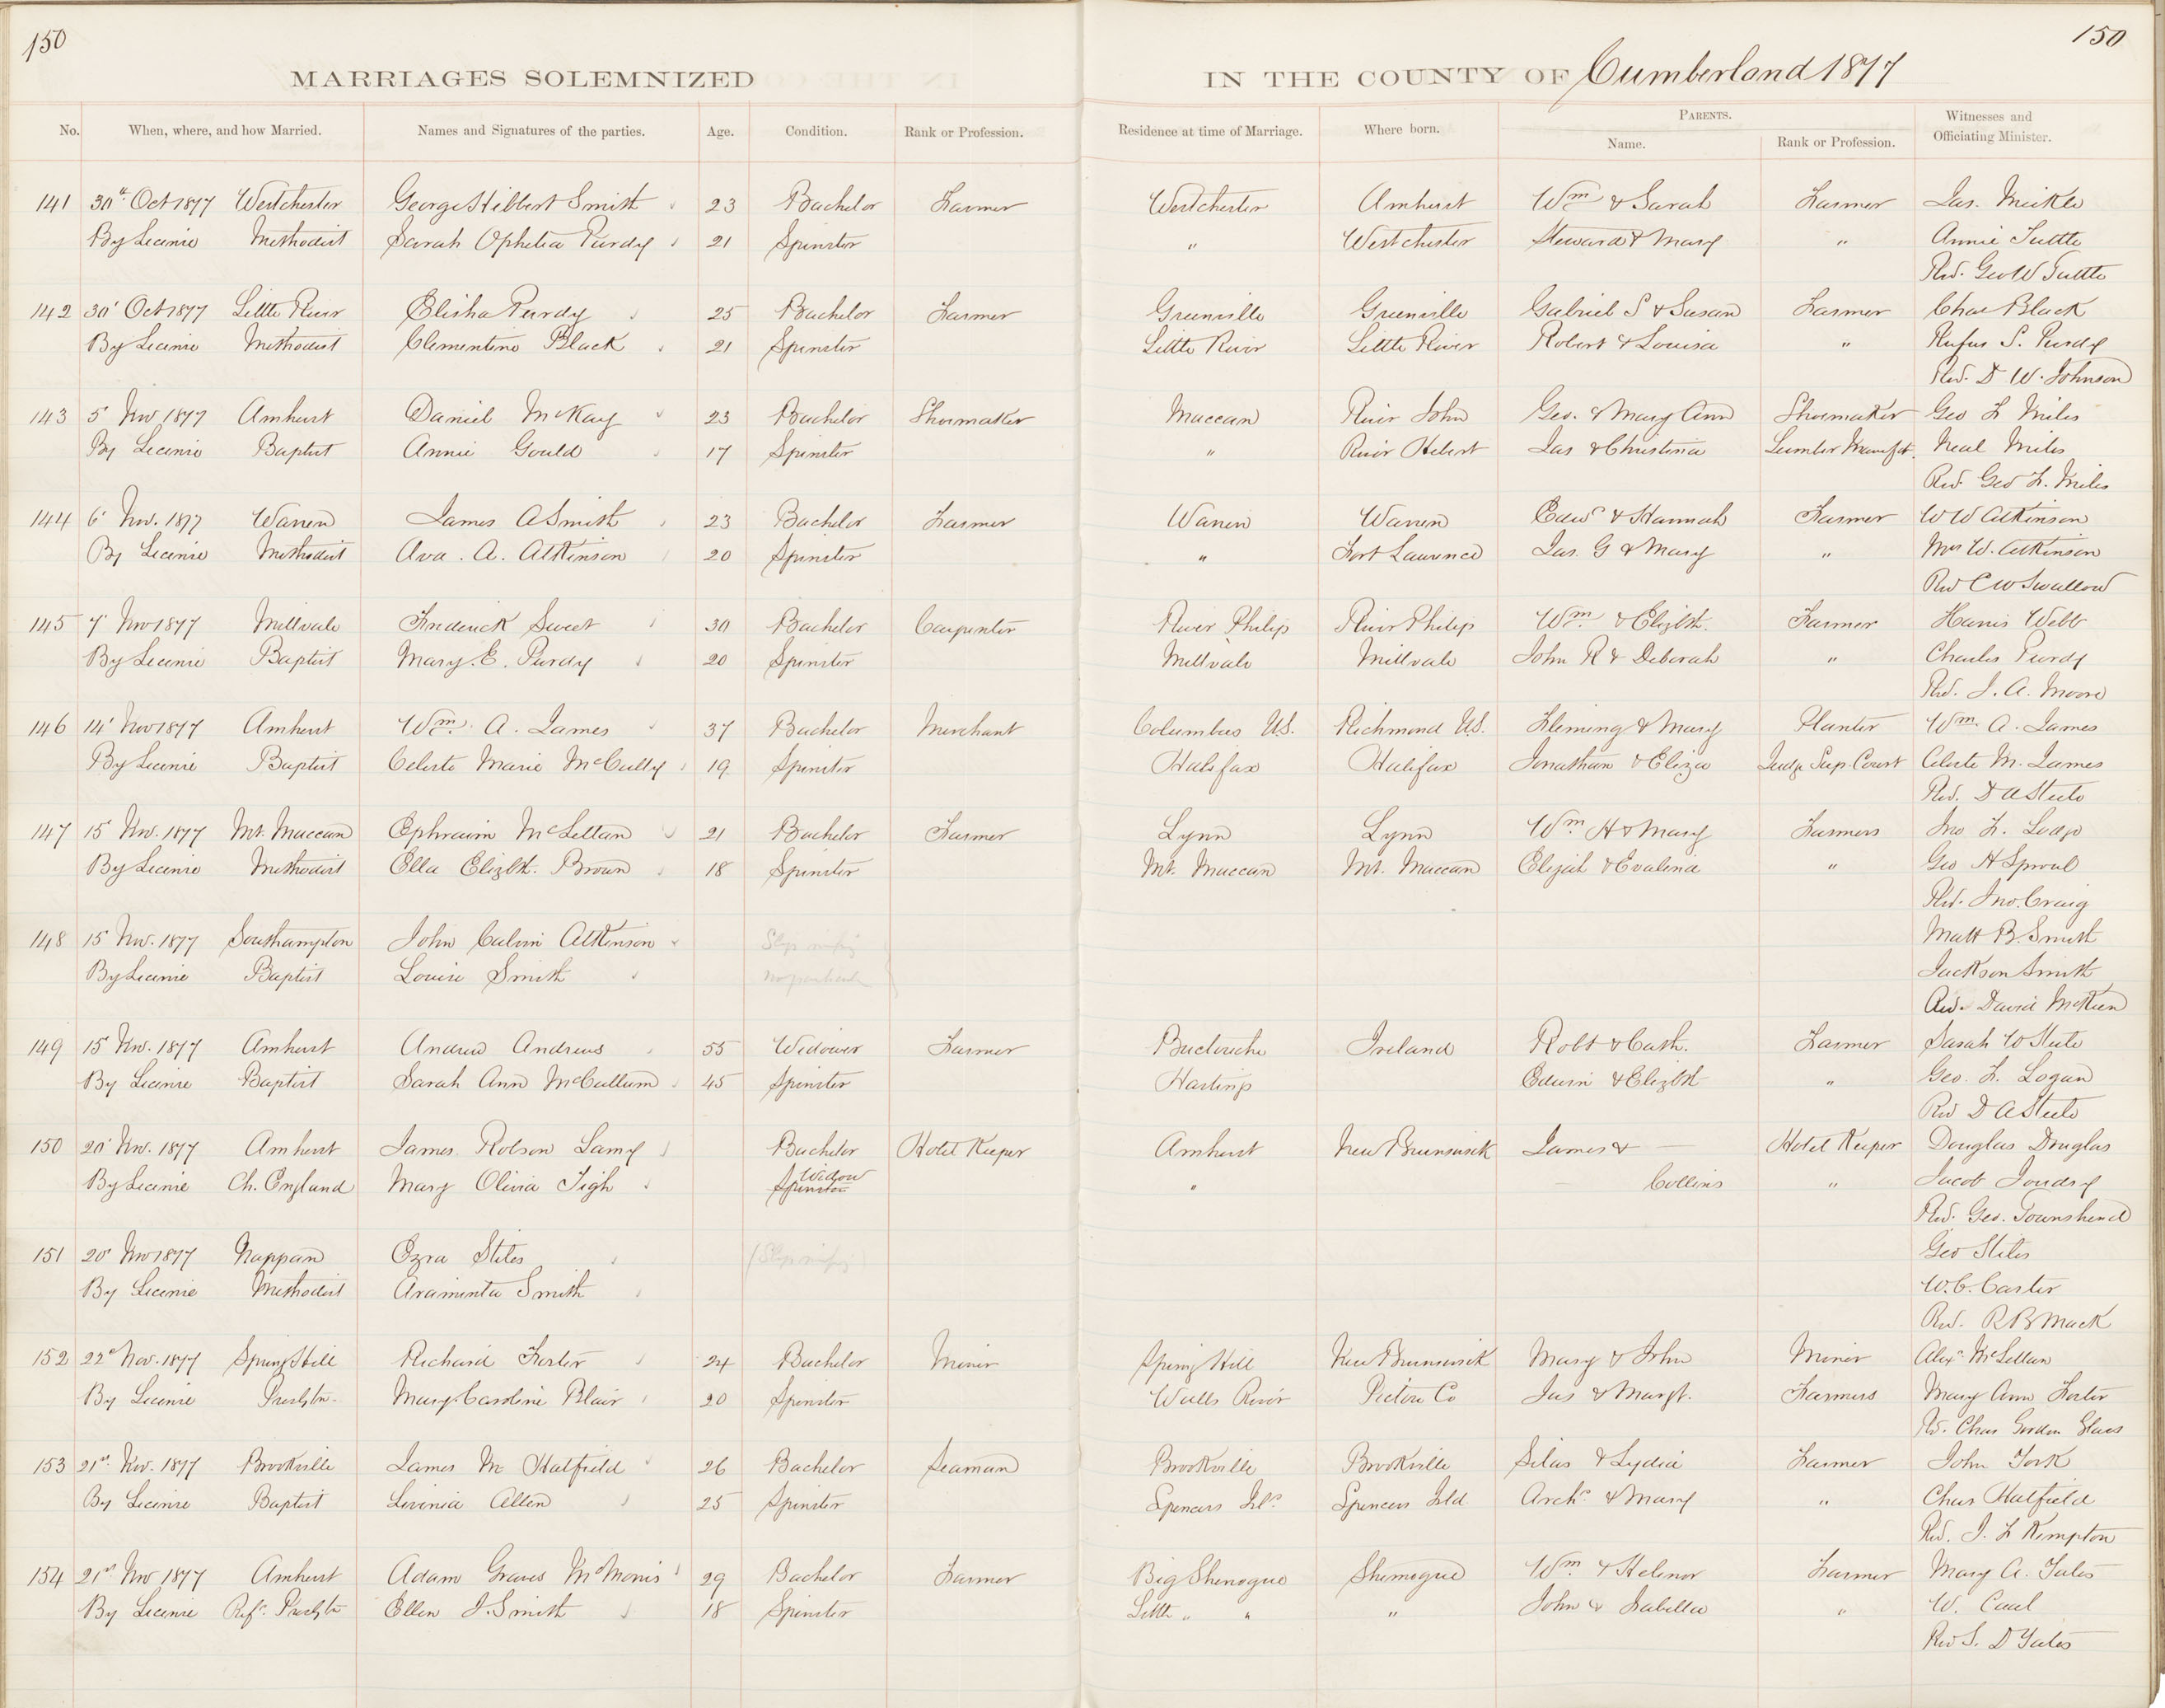 150
150
MARRIAGES SOLEMNIZED IN THE COUNTY OF Cumberland 1877
No. When, where, and how Married. Names and Signatures of the parties. Age. Condition. Rank or Profession. Residence at time of Marriage. Where born. PARENTS. Name. Rank or Profession. Witnesses and Officiating Minister.
141 30th Oct 1877 Westchester George Hibbert Smith 23 Bachelor Farmer Westchester Amherst Wm & Sarah Farmer Jas. Mickle
By License Methodist Sarah Ophelia Purdy 21 Spinster " Westchester Steward & Mary " Annie Tuttle
Rev. Geo W Tuttle
142 30' Oct 1877 Little River Elisha Purdy 25 Bachelor Farmer Greenville Greenville Gabriel S & Susan Farmer Chas Black
By License Methodist Clementine Black 21 Spinster Little River Little River Robert & Louisa " Rufus S. Purdy
Rev. D W. Johnson
143 5' Nov 1877 Amherst Daniel McKay 23 Bachelor Shoemaker Maccan River John Geo. & Mary Ann Shoemaker Geo F Miles
By License Baptist Annie Gould 17 Spinster " River Hebert Jas & Christina Lumber Manufct. Neal Miles
Rev Geo F. Miles
144 6' Nov. 1877 Warren James A Smith 23 Bachelor Farmer Warren Warren Edwd & Hannah Farmer W W Atkinson
By License Methodist Ava. A. Atkinson 20 Spinster " Fort Lawrence Jas. G & Mary " Mrs W. Atkinson
Rev C W Swallow
145 7' Nov 1877 Millvale Frederick Sweet 30 Bachelor Carpenter River Philip River Philip Wm. & Elizbth. Farmer Harris Webb
By License Baptist Mary. E. Purdy 20 Spinster Millvale Millvale John R & Deborah " Charles Purdy
Rev. J. A. Moore
146 14' Nov 1877 Amherst Wm. A. James 37 Bachelor Merchant Columbus U.S. Richmond U.S. Fleming & Mary Planter Wm. A. James
By License Baptist Celeste Marie McCully 19 Spinster Halifax Halifax Jonathan & Eliza Judge Sup. Court Celeste M. James
Rev. D A Steele
147 15' Nov. 1877 Mt. Maccan Ephraim McLellan 21 Bachelor Farmer Lynn Lynn Wm. H & Mary Farmers Jno F. Lodge
By License Methodist Ella Elizbth. Brown 18 Spinster Mt. Maccan Mt. Maccan Elijah & Evalina " Geo H Sproul
Rev. Jno. Craig
148 15' Nov. 1877 Southampton John Calvin Atkinson Slip Matt B. Smith
By License Baptist Louise Smith Jackson Smith
Rev. David McKeen
149 15' Nov. 1877 Amherst Andrew Andrews 55 Widower Farmer Buctouche Ireland Robt & Cath. Farmer Sarah W Steele
By License Baptist Sarah Ann McCullum 45 Spinster Hastings Edwin & Elizbth " Geo. F. Logan
Rev D A Steele
150 20' Nov. 1877 Amherst James Robson Lamy Bachelor Hotel Keeper Amherst New Brunswick James & — Hotel Keeper Douglas Douglas
By License Ch. England Mary Olivia Tigh Spinster Widow " — Collins " Jacob Joudry
Rev. Geo. Townshend
151 20' Nov 1877 Nappan Ezra Stiles (Slip Geo Stiles
By License Methodist Araminta Smith W. C. Carter
Rev. R B Mack
152 22d Nov. 1877 Spring Hill Richard Forter 24 Bachelor Miner Spring Hill New Brunswick Mary & John Miner Alexr McLellan
By License Presbtn. Mary Caroline Blair 20 Spinster Walls River Pictou Co Jas & Margt. Farmers Mary Ann Forter
Rv. Chas Gordon Glass
153 21st. Nov. 1877 Brookville James M Hatfield 26 Bachelor Seaman Brookville Brookville Silas & Lydia Farmer John York
By License Baptist Livinia Allen 25 Spinster Spencers Ild. Spencers Ild Archd & Mary " Chas Hatfield
Rev. J. F Kempton
154 21st Nov 1877 Amherst Adam Graves McMorris 29 Bachelor Farmer Big Shemogue Shemogue Wm & Helenor Farmer Mary A. Yates
By License Refd. Presbtn Ellen J. Smith 18 Spinster Little " " " John & Isabella " W. Caul
Rev S. D Yates